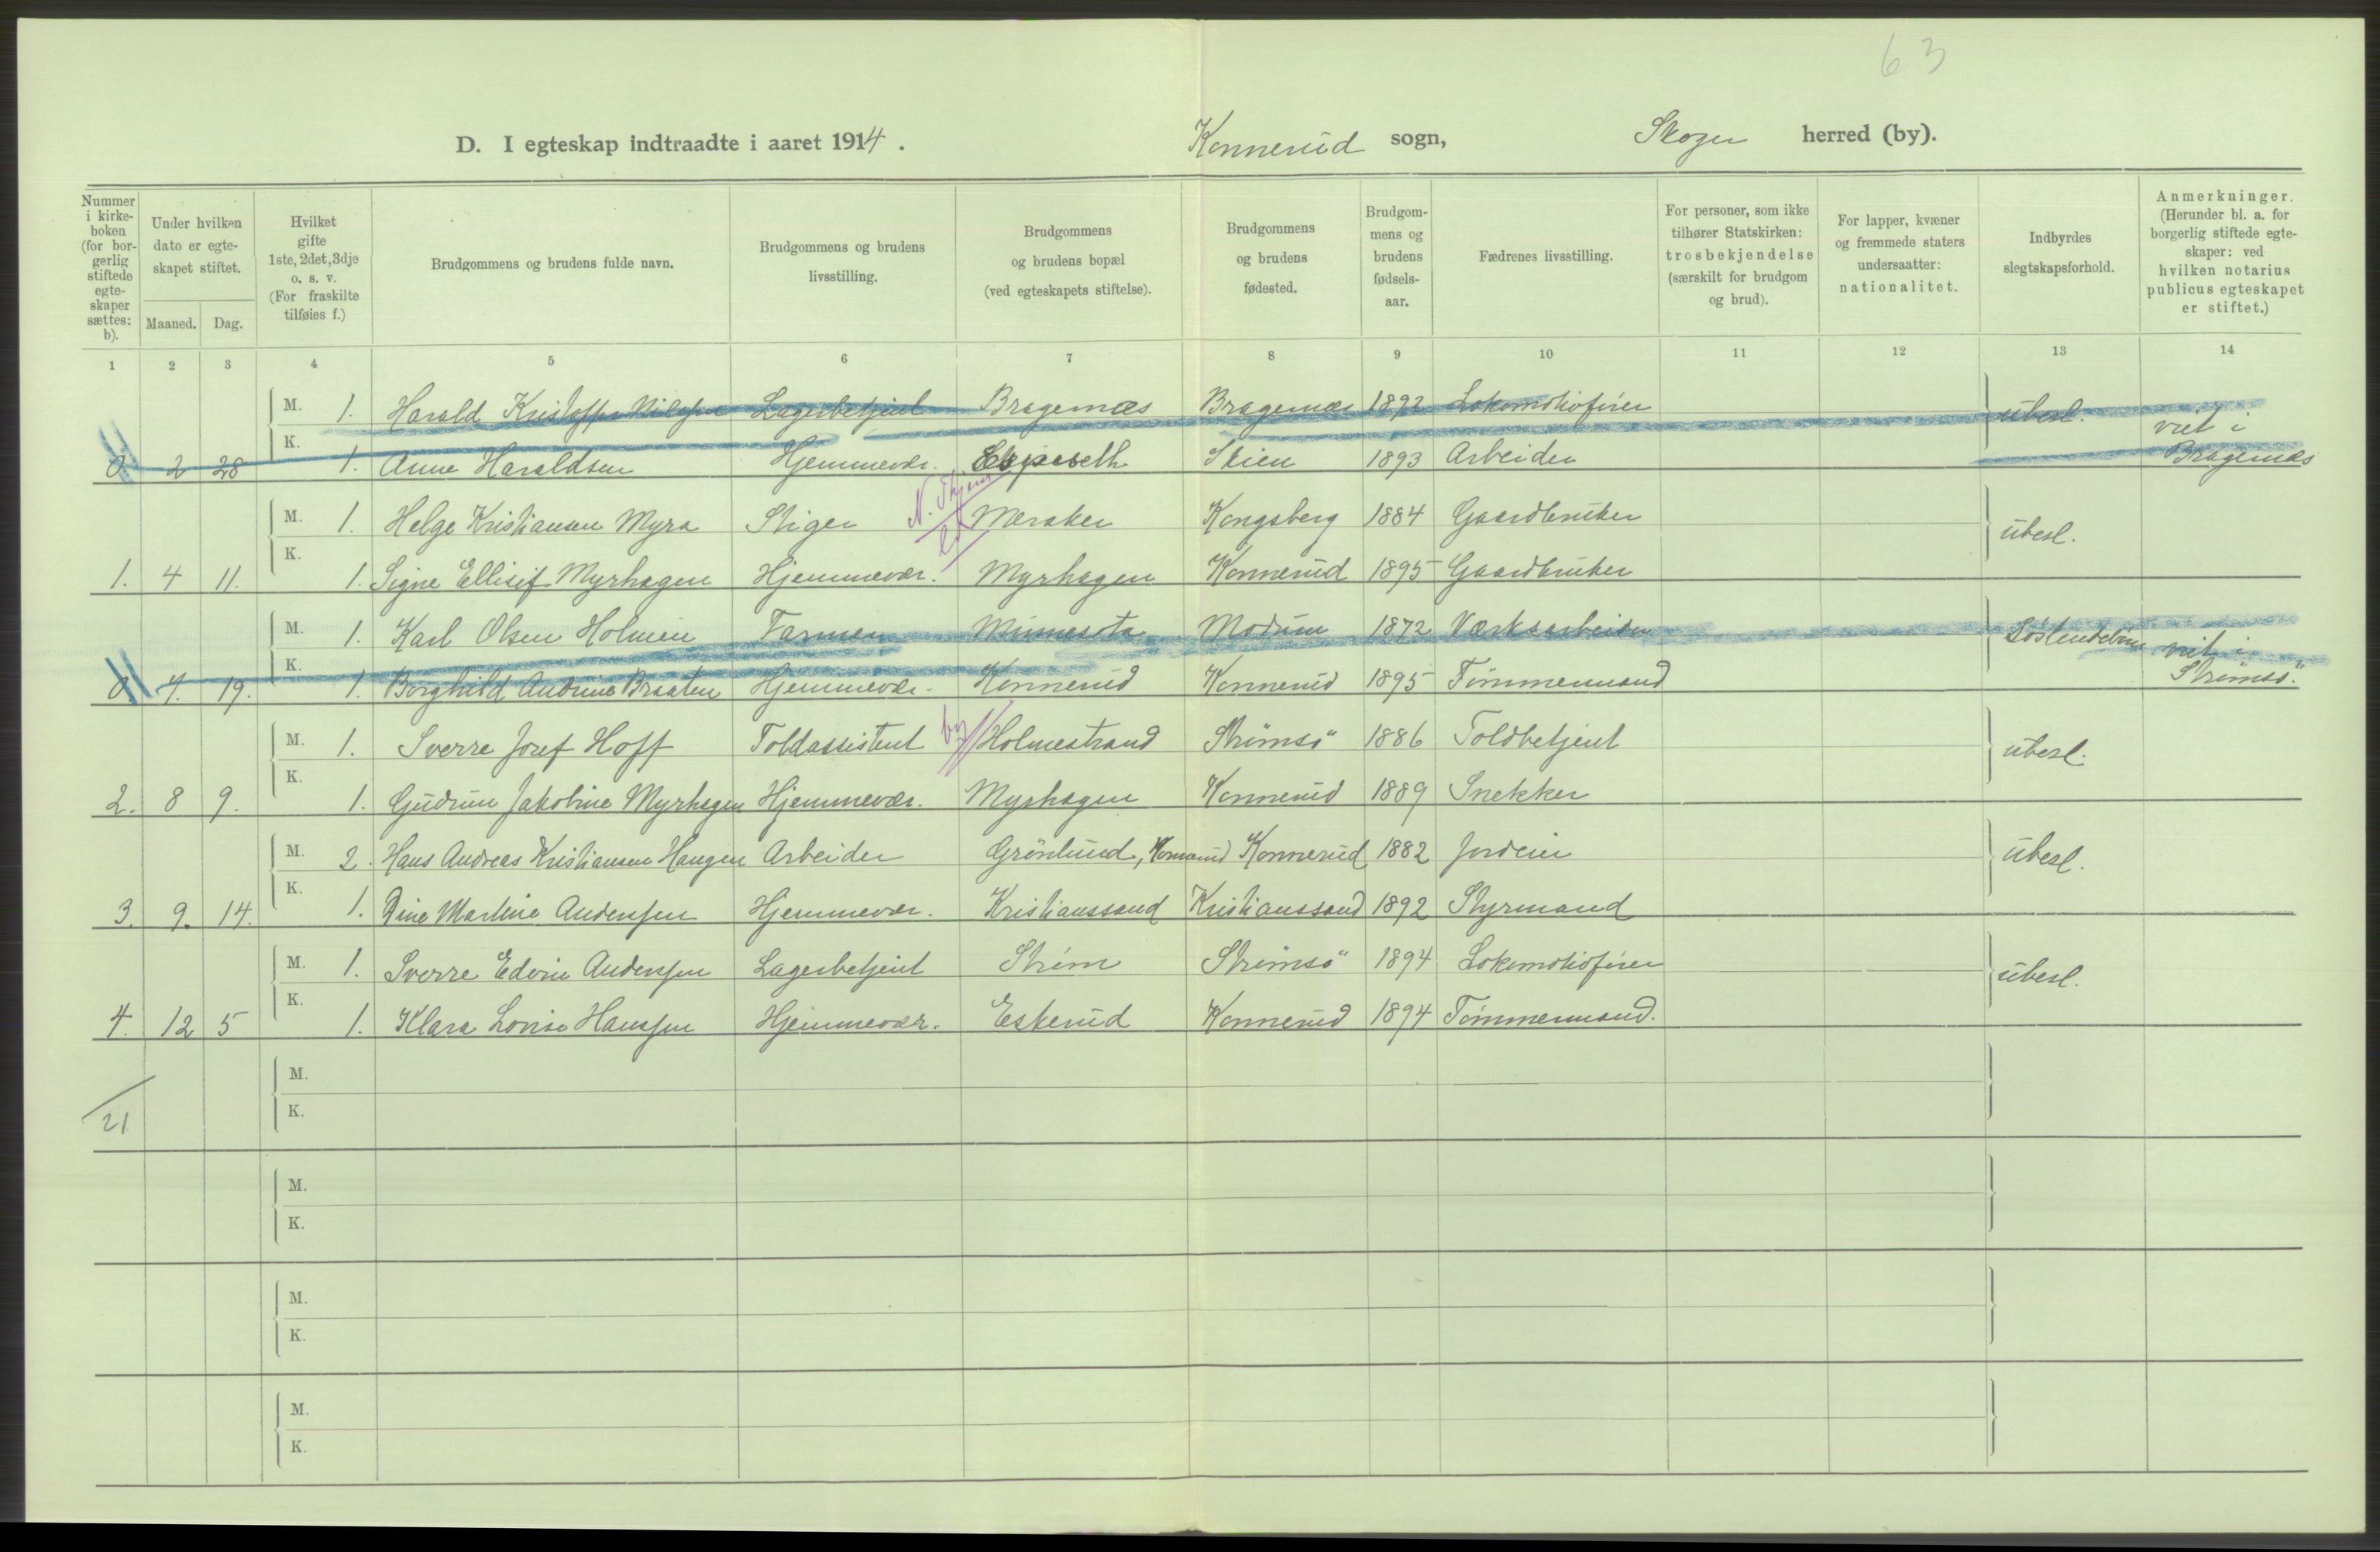 63
D. I egteskap indtraadte i aaret 1914. Konnerud sogn, Skoger herred (by).
Nummer i kirkeboken (for borgerlig stiftede egteskaper sættes: b).
Under hvilken dato er egteskapet stiftet.
Maaned. Dag.
Hvilket gifte 1ste, 2det, 3dje o. s. v. (For fraskilte tilføies f.)
Brudgommens og brudens fulde navn.
Brudgommens og brudens livsstilling.
Brudgommens og brudens bopæl (ved egteskapets stiftelse).
Brudgommens og brudens fødested.
Brudgommens og brudens fødselsaar.
Fædrenes livsstilling.
For personer, som ikke tilhører Statskirken: trosbekjendelse (særskilt for brudgom og brud).
For lapper, kvæner og fremmede staters undersaatter: nationalitet.
Indbyrdes slegtskapsforhold.
Anmerkninger. (Herunder bl. a. for borgerlig stiftede egteskaper: ved hvilken notarius publicus egteskapet er stiftet.)
1 2 3 4 5 6 7 8 9 10 11 12 13 14
M. 1. Harald Kristoffer Nilssen Lagerbetjent Bragernæs Bragernæs 1892 Lokomotivfører ubesl. viet i
0 2 28 K. 1. Anne Haraldsen Hjemmevær. Skien 1893 Arbeider Bragernæs
M. 1. Helge Kristiansen Myra Stiger Meraker Kongsberg 1884 Gaardbruker ubesl.
1. 4 11. K. 1. Signe Ellisif Myrhagen Hjemmevær. Myrhagen Konnerud 1895 Gaardbruker
M. 1. Karl Olsen Holmen Farmer Minnesota Modum 1872 Værksarbeider Søskendebarn viet i
0 7. 19. K. 1. Borghild Andrine Braaten Hjemmevær. Konnerud Konnerud 1895 Tømmermand Strømsö.
M. 1. Sverre Josef Hoff Toldassistent by Holmestrand Strömsö 1886 Toldbetjent ubesl.
2. 8 9. K. 1. Gudrun Jakobine Myrhagen Hjemmevær. Myrhagen Konnerud 1889 Snekker
M. 2. Hans Andreas Kristiansen Haugen Arbeider Grönlund, Konnerud Konnerud 1882 Jordeier ubesl.
3. 9. 14. K. 1. Dine Martine Anderssen Hjemmevær. Kristianssand Kristianssand 1892 Styrmand
M. 1. Sverre Edvin Anderssen Lagerbetjent Strøm Strømsö 1894 Lokomotivfører ubesl.
4. 12 5 K. 1. Klara Lovise Hanssen Hjemmevær. Eskerud Konnerud 1894 Tømmermand.
M.
21 K.
M.
K.
M.
K.
M.
K.